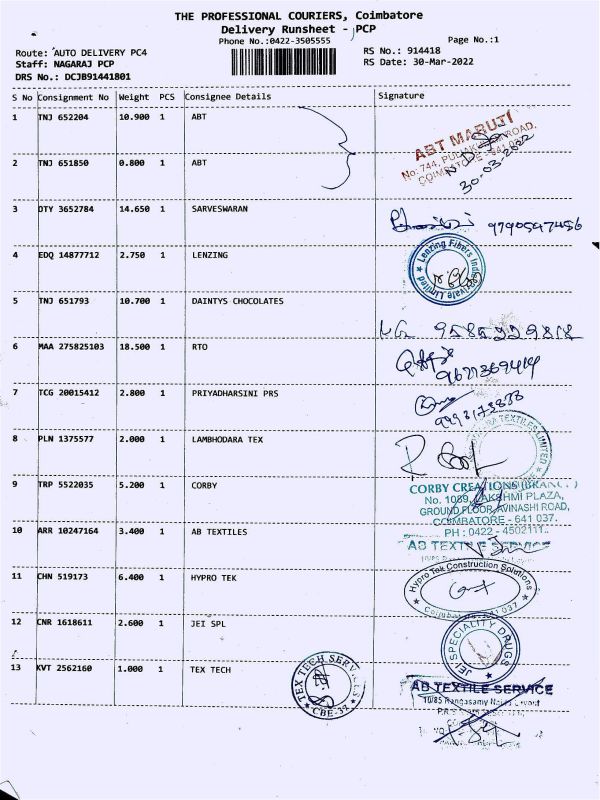 THE PROFESSIONAL COURIERS, Coimbatore
Delivery Runsheet - PCP
Phone No.:0422-3505555
Page No.:1
Route: AUTO DELIVERY PC4
RS No.: 914418
Staff: NAGARAJ PCP
RS Date: 30-Mar-2022
DRS No.: DCJB91441801
S No Consignment No Weight PCS Consignee Details Signature
1 TNJ 652204 10.900 1 ABT
ABT MARUTI
No: 744, ROAD,
COIMBATORE - 641 037
30-03-2022
2 TNJ 651850 0.800 1 ABT
3 DTY 3652784 14.650 1 SARVESWARAN
9790597456
4 EDQ 14877712 2.750 1 LENZING
Lenzing Fibers India Private Limited
5 TNJ 651793 10.700 1 DAINTYS CHOCOLATES
9585229818
6 MAA 275825103 18.500 1 RTO
7 TCG 20015412 2.800 1 PRIYADHARSINI PRS
8 PLN 1375577 2.000 1 LAMBHODARA TEX
TEXTILES LIMITED
9 TRP 5522035 5.200 1 CORBY
CORBY CREATIONS
No. 1089, LAKSHMI PLAZA,
GROUND FLOOR, AVINASHI ROAD,
COIMBATORE - 641 037.
PH : 0422 - 4502111
10 ARR 10247164 3.400 1 AB TEXTILES
AB TEXTILE SERVICE
11 CHN 519173 6.400 1 HYPRO TEK
Hypro Tek Construction Solutions
Coimbatore - 641 037
12 CNR 1618611 2.600 1 JEI SPL
JEI SPECIALITY DRUGS
13 KVT 2562160 1.000 1 TEX TECH
TEX TECH SERVICES
CBE-37
AB TEXTILE SERVICE
10/85 Rangasamy Layout